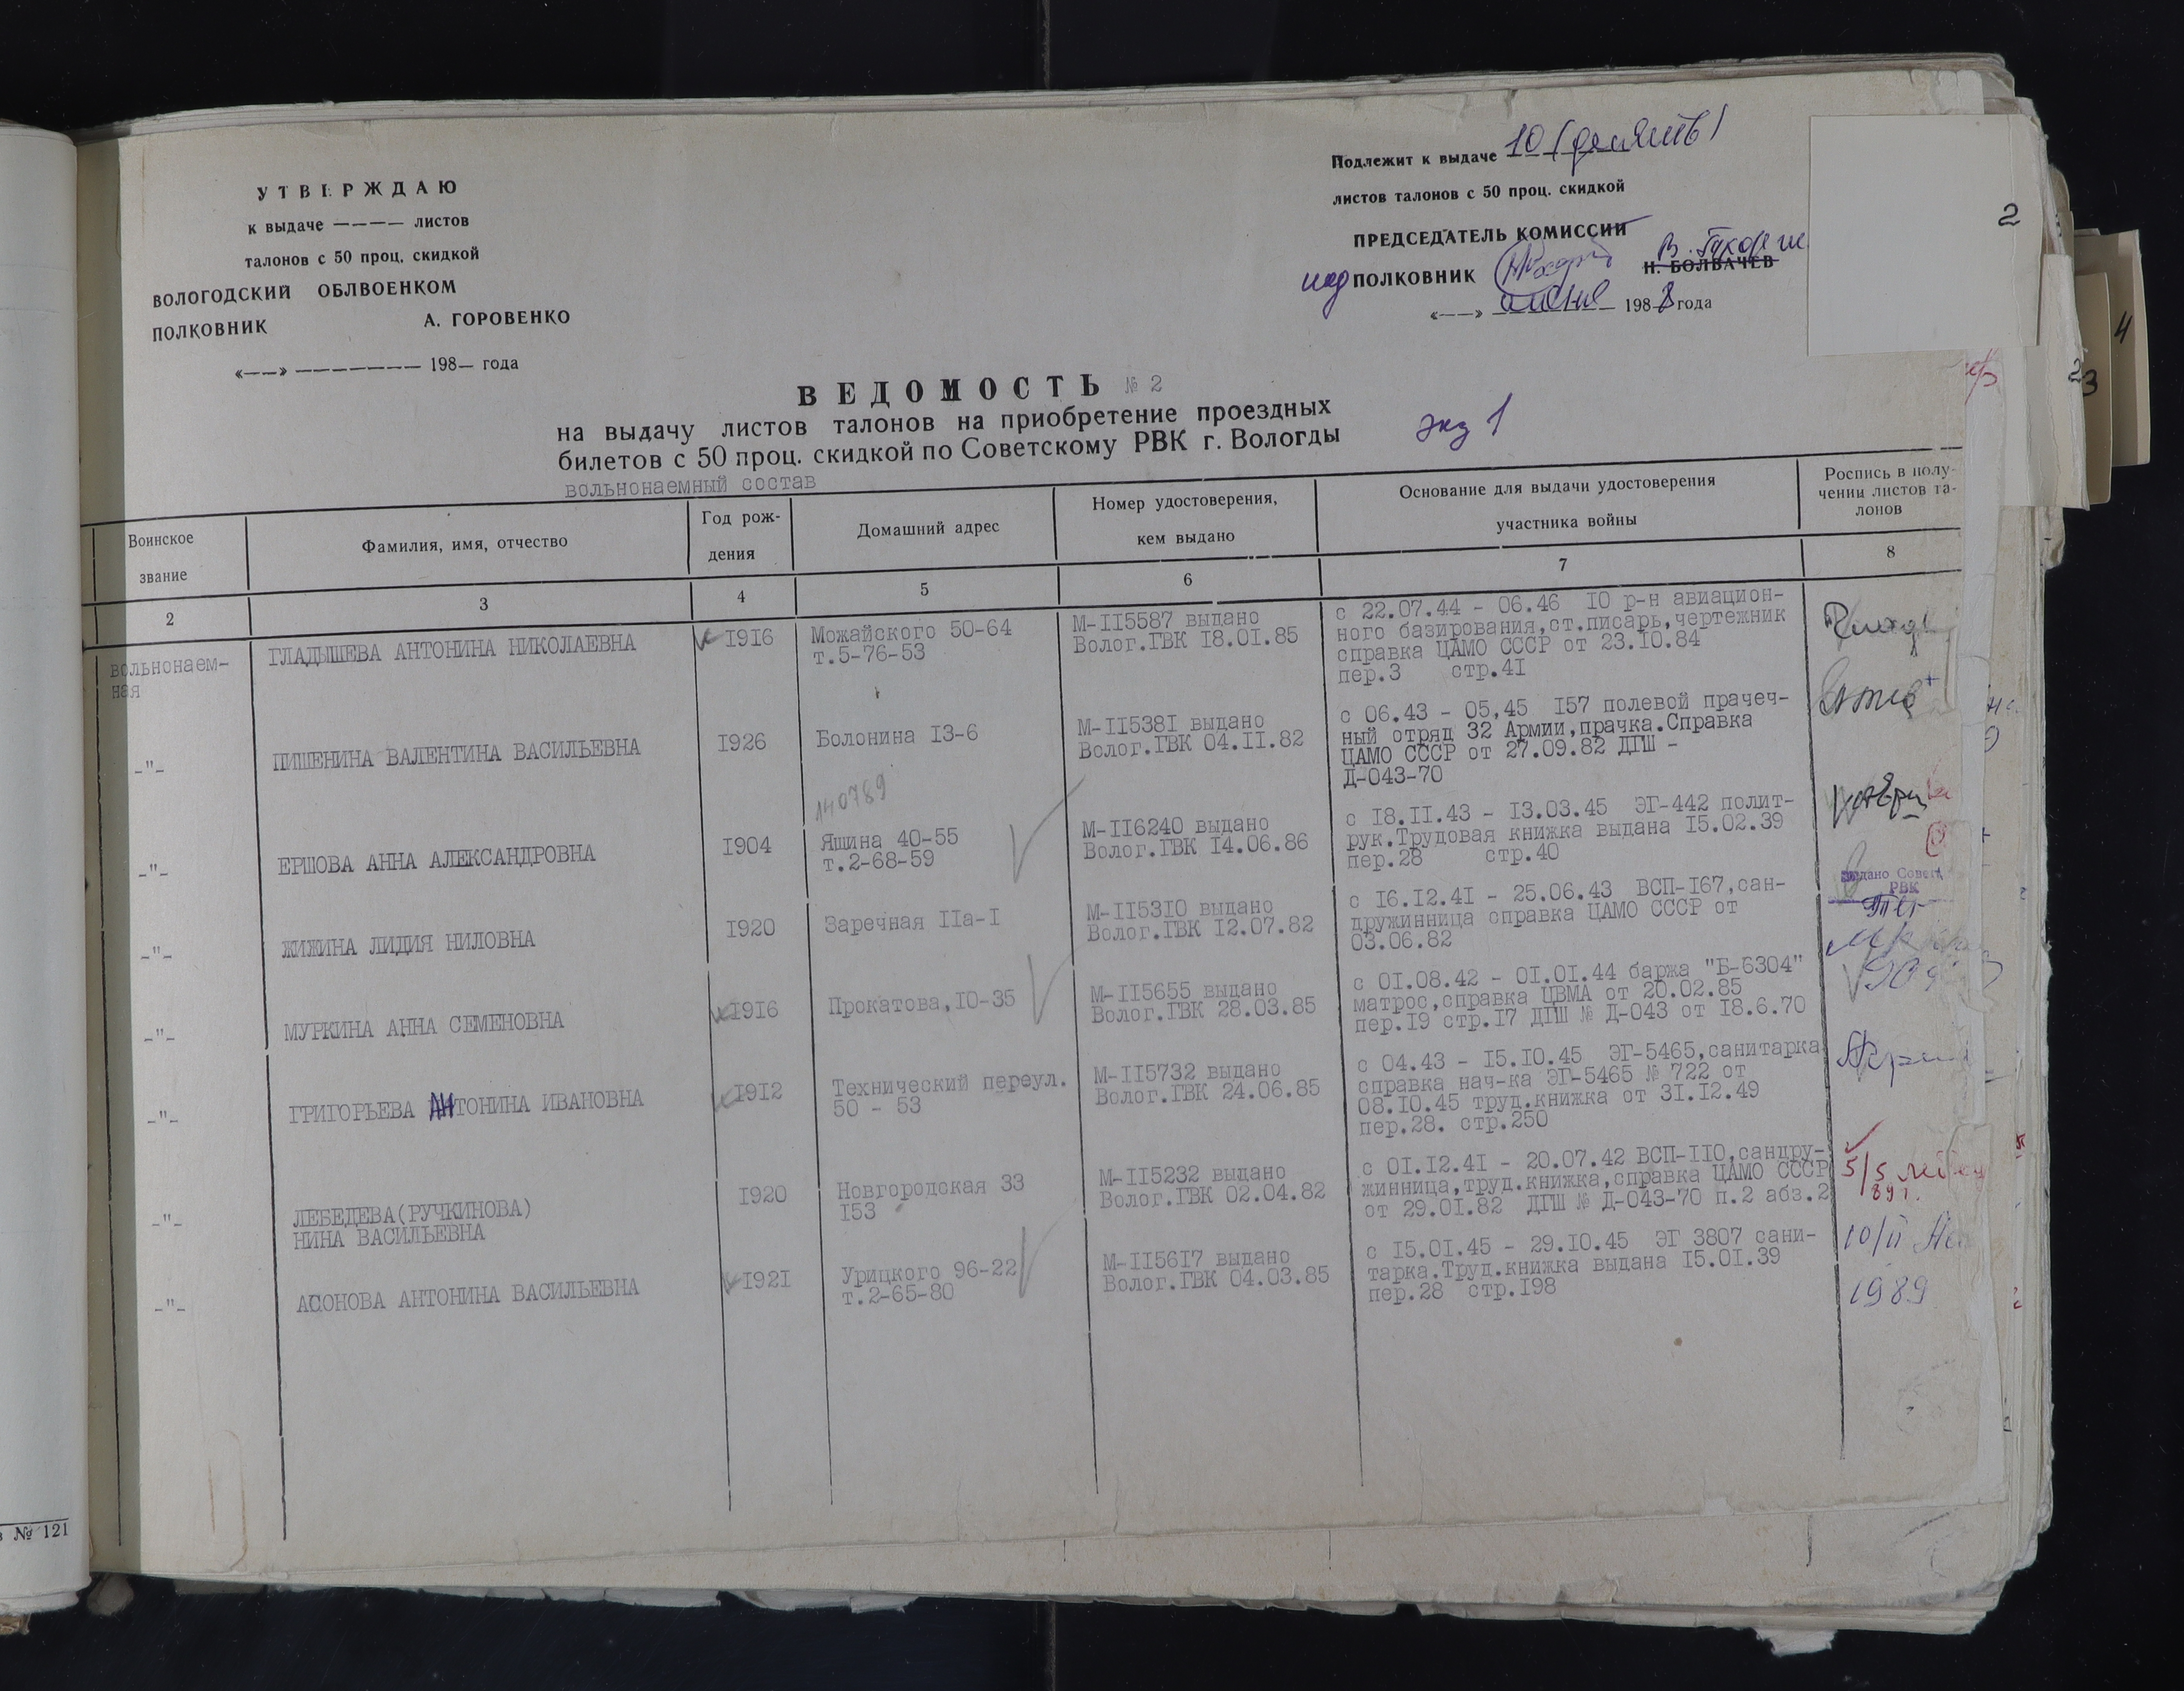 УТВЕРЖДАЮ
к выдаче ———— листов
талонов с 50 проц. скидкой
ВОЛОГОДСКИЙ ОБЛВОЕНКОМ
ПОЛКОВНИК А. ГОРОВЕНКО
«——» ——————— 198— года
Подлежит к выдаче 10 (десять)
листов талонов с 50 проц. скидкой
ПРЕДСЕДАТЕЛЬ КОМИССИИ
ПОЛКОВНИК Н. БОЛВАЧЕВ
«——» 1988 года
2
ВЕДОМОСТЬ № 2
на выдачу листов талонов на приобретение проездных
билетов с 50 проц. скидкой по Советскому РВК г. Вологды
экз 1
вольнонаемный состав
Воинское звание
Фамилия, имя, отчество
Год рождения
Домашний адрес
Номер удостоверения,
кем выдано
Основание для выдачи удостоверения
участника войны
Роспись в полу-
чении листов та-
лонов
2 3 4 5 6 7 8
вольнонаем-
ная
ГЛАДЫШЕВА АНТОНИНА НИКОЛАЕВНА
I9I6
Можайского 50-64
т.5-76-53
М-II5587 выдано
Волог.ГВК I8.0I.85
с 22.07.44 - 06.46 I0 р-н авиацион-
ного базирования,ст.писарь,чертежник
справка ЦАМО СССР от 23.I0.84
пер.3 стр.4I
-"-
ПИШЕНИНА ВАЛЕНТИНА ВАСИЛЬЕВНА
I926
Болонина I3-6
М-II538I выдано
Волог.ГВК 04.II.82
с 06.43 - 05,45 I57 полевой прачеч-
ный отряд 32 Армии,прачка.Справка
ЦАМО СССР от 27.09.82 ДГШ -
Д-043-70
140789
-"-
ЕРШОВА АННА АЛЕКСАНДРОВНА
I904
Яшина 40-55
т.2-68-59
М-II6240 выдано
Волог.ГВК I4.06.86
с I8.II.43 - I3.03.45 ЭГ-442 полит-
рук.Трудовая книжка выдана I5.02.39
пер.28 стр.40
-"-
ЖИЖИНА ЛИДИЯ НИЛОВНА
I920
Заречная IIа-I
М-II53I0 выдано
Волог.ГВК I2.07.82
с I6.I2.4I - 25.06.43 ВСП-I67,сан-
дружинница справка ЦАМО СССР от
03.06.82
Выдано Совет
РВК
-"-
МУРКИНА АННА СЕМЕНОВНА
I9I6
Прокатова,I0-35
М-II5655 выдано
Волог.ГВК 28.03.85
с 0I.08.42 - 0I.0I.44 баржа "Б-6304"
матрос,справка ЦВМА от 20.02.85
пер.I9 стр.I7 ДГШ № Д-043 от I8.6.70
-"-
ГРИГОРЬЕВА АНТОНИНА ИВАНОВНА
I9I2
Технический переул.
50 - 53
М-II5732 выдано
Волог.ГВК 24.06.85
с 04.43 - I5.I0.45 ЭГ-5465,санитарка
справка нач-ка ЭГ-5465 № 722 от
08.I0.45 труд.книжка от 3I.I2.49
пер.28. стр.250
-"-
ЛЕБЕДЕВА(РУЧКИНОВА)
НИНА ВАСИЛЬЕВНА
I920
Новгородская 33
I53
М-II5232 выдано
Волог.ГВК 02.04.82
с 0I.I2.4I - 20.07.42 ВСП-II0,сандру-
жинница,труд.книжка,справка ЦАМО СССР
от 29.0I.82 ДГШ № Д-043-70 п.2 абз.2
5/5
89 г.
-"-
АСОНОВА АНТОНИНА ВАСИЛЬЕВНА
I92I
Урицкого 96-22
т.2-65-80
М-II56I7 выдано
Волог.ГВК 04.03.85
с I5.0I.45 - 29.I0.45 ЭГ 3807 сани-
тарка.Труд.книжка выдана I5.0I.39
пер.28 стр.I98
10/II
1989
№ 121
4
23